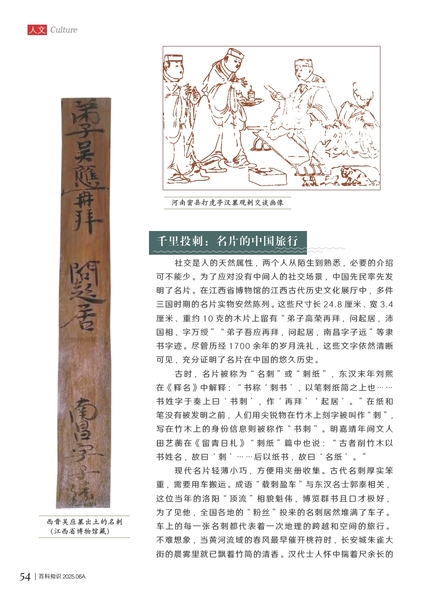 人文 Culture
弟子吴應再拜
問起居
南昌字子遠
西晋吴应墓出土的名刺
（江西省博物馆藏）
河南密县打虎亭汉墓观刺交谈画像
千里投刺：名片的中国旅行
社交是人的天然属性，两个人从陌生到熟悉，必要的介绍
可不能少。为了应对没有中间人的社交场景，中国先民率先发
明了名片。在江西省博物馆的江西古代历史文化展厅中，多件
三国时期的名片实物安然陈列。这些尺寸长 24.8 厘米、宽 3.4
厘米、重约 10 克的木片上留有“弟子高荣再拜，问起居，沛
国相，字万绶”“弟子吾应再拜，问起居，南昌字子远”等隶
书字迹。尽管历经 1700 余年的岁月洗礼，这些文字依然清晰
可见，充分证明了名片在中国的悠久历史。
古时，名片被称为“名刺”或“刺纸”，东汉末年刘熙
在《释名》中解释：“书称‘刺书’，以笔刺纸简之上也……
书姓字于奏上曰‘书刺’，作‘再拜’‘起居’。”在纸和
笔没有被发明之前，人们用尖锐物在竹木上刻字被叫作“刺”，
写在竹木上的身份信息则被称作“书刺”。明嘉靖年间文人
田艺蘅在《留青日札》“刺纸”篇中也说：“古者削竹木以
书姓名，故曰‘刺’……后以纸书，故曰‘名纸’。”
现代名片轻薄小巧，方便用夹册收集。古代名刺厚实笨
重，需要用车搬运。成语“载刺盈车”与东汉名士郭泰相关，
这位当年的洛阳“顶流”相貌魁伟，博览群书且口才极好，
为了见他，全国各地的“粉丝”投来的名刺居然堆满了车子。
车上的每一张名刺都代表着一次地理的跨越和空间的旅行。
不难想象，当黄河流域的春风最早催开桃符时，长安城朱雀大
街的晨雾里就已飘着竹简的清香。汉代士人怀中揣着尺余长的
54 百科知识 2025.06A